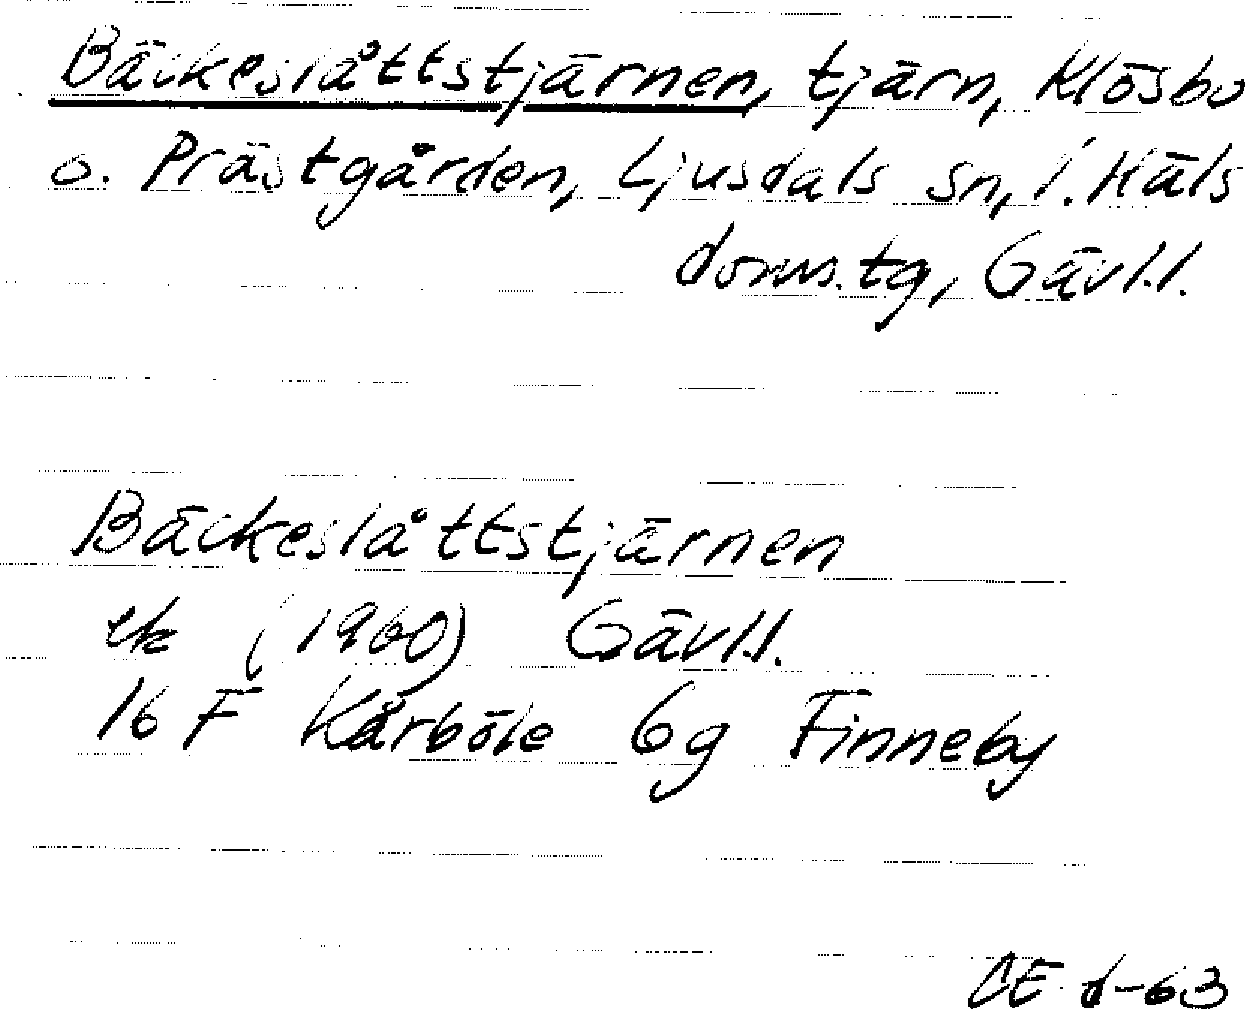 Bäckeslåttstjärnen, tjärn, Klösbo
o. Prästgården, Ljusdals sn, v. Häls
doms.tg, Gävl.l.
Bäckeslåttstjärnen
ek (1960) Gävl.l.
16 F Kårböle 6g Finneby
CE d-63